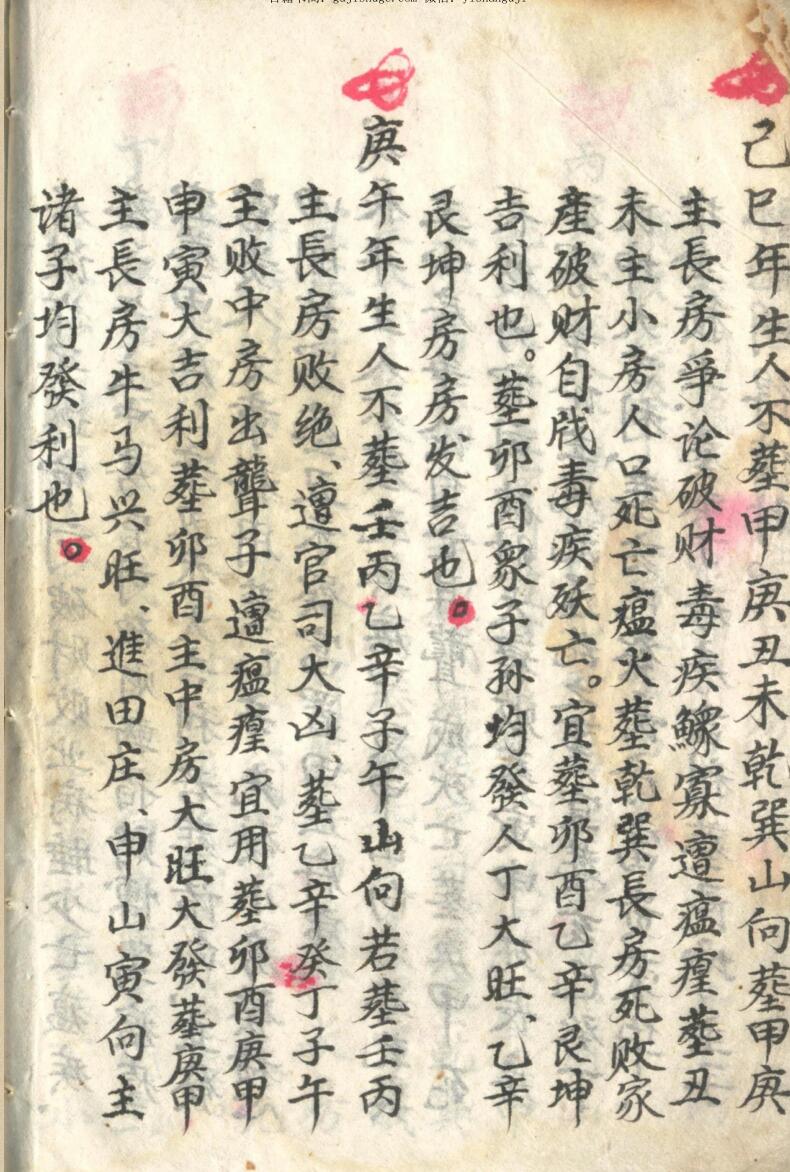 己巳年生人不塟甲庚丑未乾巽山向塟甲庚
主長房爭论破财毒疾鰥寡遭瘟瘽塟丑
未主小房人口死亡瘟火塟乾巽長房死败家
産破财自戕毒疾妖亡。宜塟卯酉乙辛艮坤
吉利也。塟卯酉衆子孙均發人丁大旺、乙辛
艮坤房房发吉也。
庚午年生人不塟壬丙乙辛子午山向若塟壬丙
主長房败绝、遭官司大凶、塟乙辛癸丁子午
主败中房出聾子遭瘟瘽宜用塟卯酉庚甲
申寅大吉利塟卯酉主中房大旺大發塟庚甲
主長房牛马兴旺、進田庄、申山寅向主
诸子均發利也。